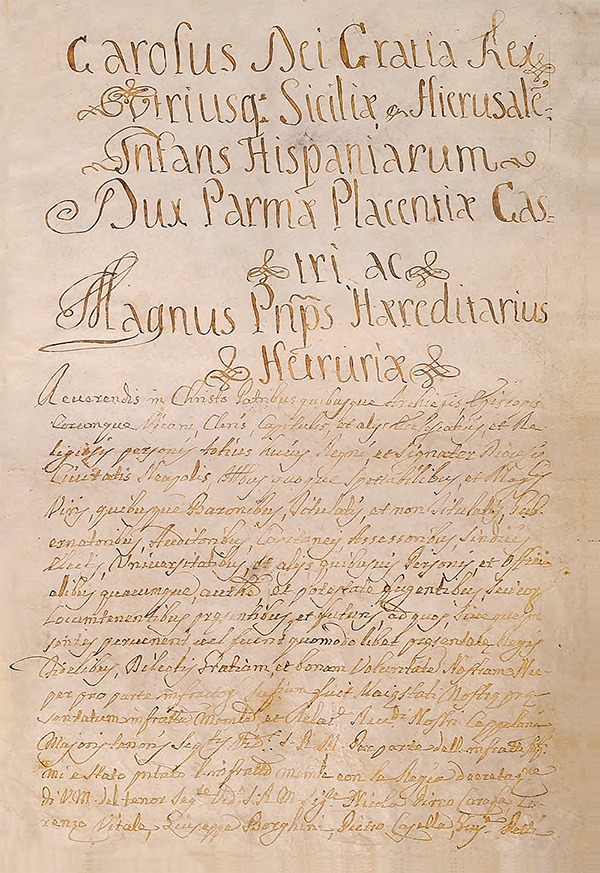 Carolus Dei Gratia Rex
Utriusq: Siciliæ, Hierusalẽ:
Infans Hispaniarum
Dux Parmæ Placentiæ Cas-
tri ac
Magnus Pnp̃s Hæreditarius
Hetruriæ
Reverendis in Christo Patribus quibusque Archiepis Episcopis
eorumque Vicarijs, Cleris, Capitulis, et alijs et Re-
ligiosis personis totius huius Regni, et Signater Diocesis
Civitatis Neapolis Illbus quoque Spectabilibus, et Magcis
Viris, quibusque Baronibus, Titulatis, et non Titulatis, Gub-
ernatoribus, Auditoribus, Capitaneis Assessoribus, Sindicis
Electis, Universitatibus, et alijs quibusvis Personis et Offici-
alibus quacunque, aucthe et potestate fugentibus eorumq
Locumtenentibus presentibus, et futuris, ad quos, sive quas pr-
sentes pervenerint vel fuerint quomodolibet presentate Regijs
Fidelibus, Dilectis Gratiam, et bonam Voluntatem Nostram Nu-
per pro parte infractorum fuit Maiestati Nostræ præ-
sentatum infrattu Memle et Relate Rev.di Nostri Cappellani
Majoris tenoris seq.tis Vid.t S. R. M. Per parte dell' infratti
mi e stato pntato l' infratto memle con la Regia decretaz.ne
di V. M. del tenor seg.te Vid.t S. R. M. Sig.re Nicola Pirro Carafa Lo-
renzo Vitale, Giuseppe Borghini, Pietro Casella,